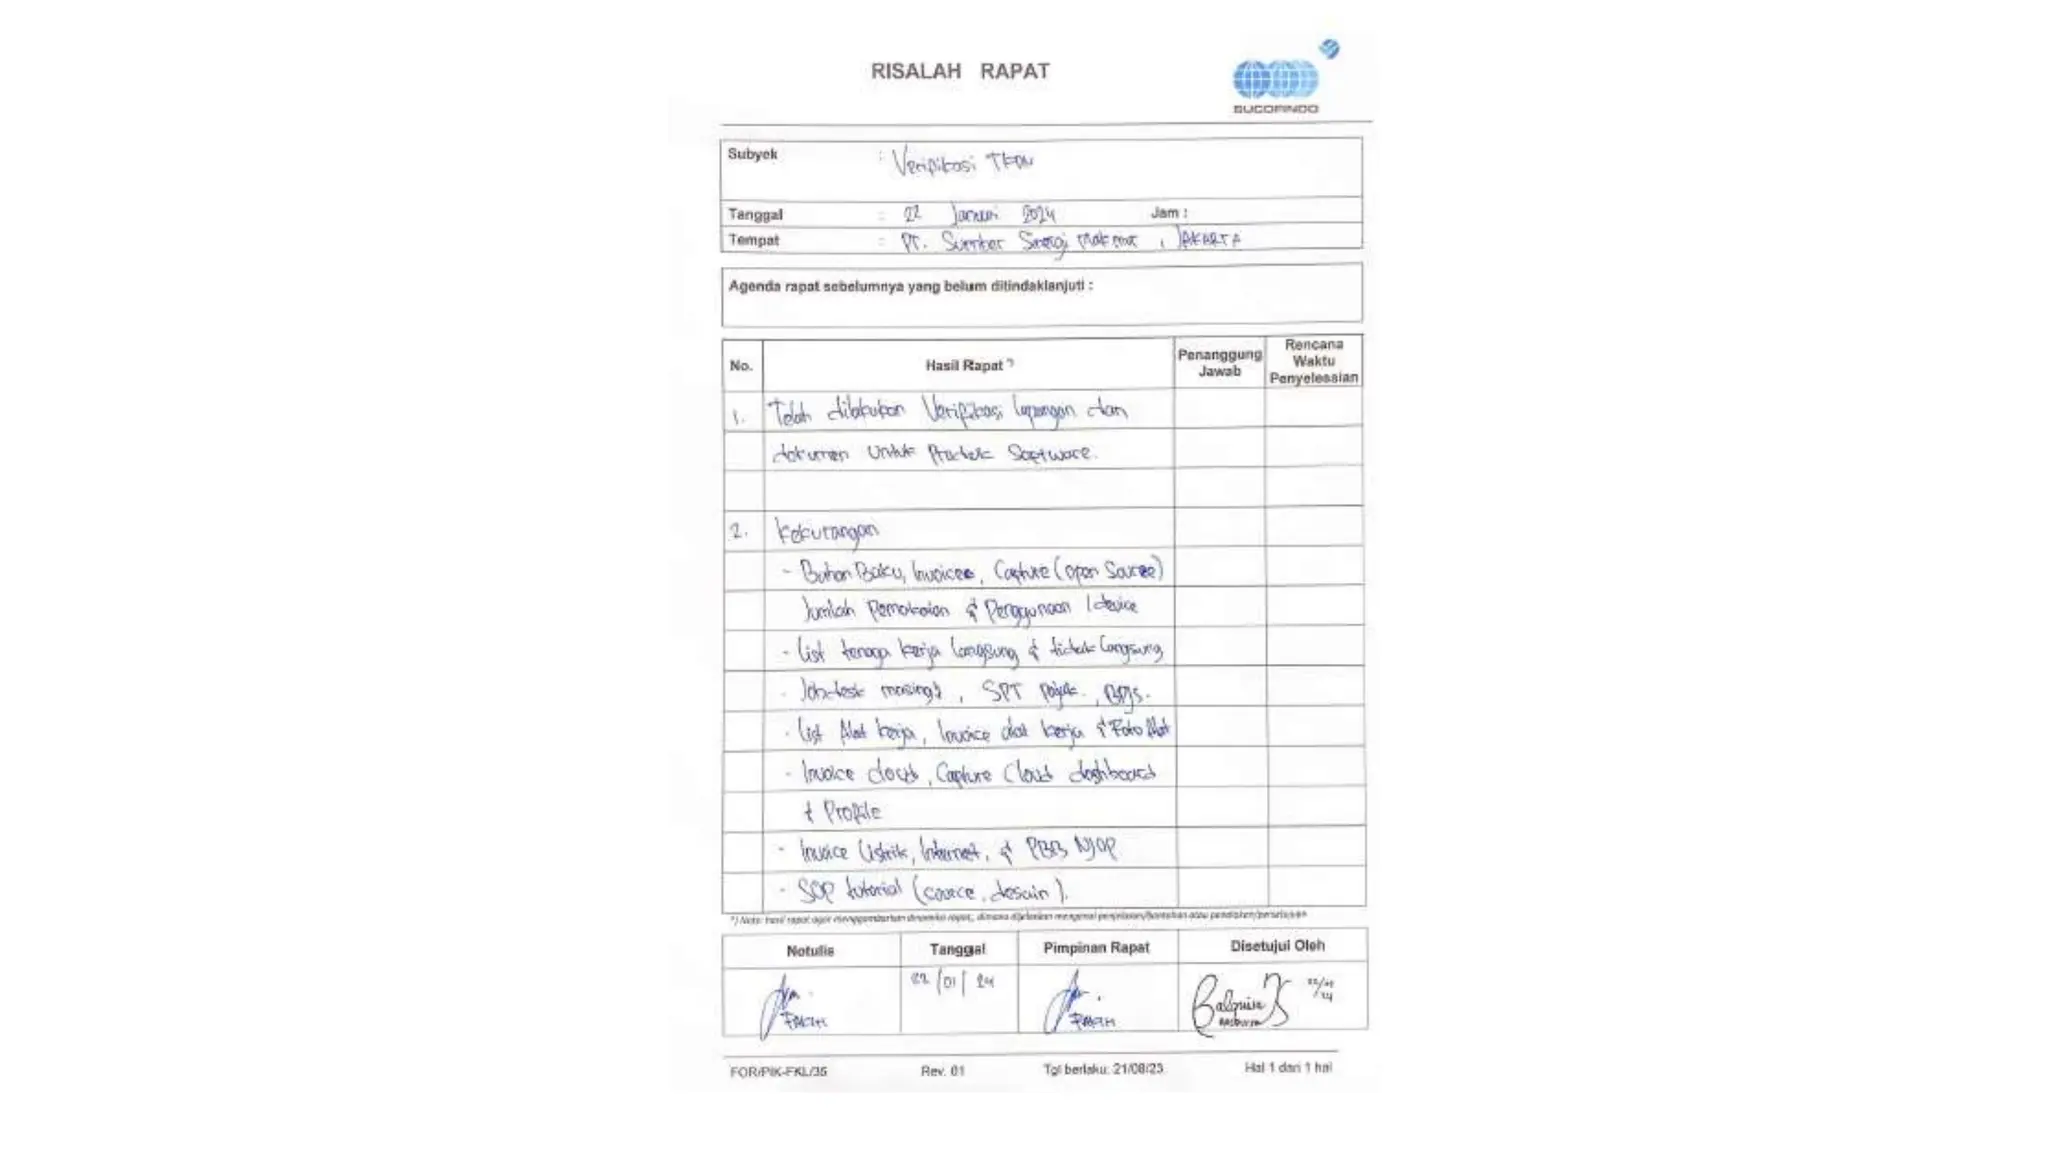 RISALAH RAPAT
SUCOFINDO
Subyek : Verifikasi TKDN
Tanggal : 22 Januari 2024 Jam :
Tempat : PT. Sumber Sinergi Makmur, JAKARTA
Agenda rapat sebelumnya yang belum ditindaklanjuti :
No. Hasil Rapat *) Penanggung Jawab Rencana Waktu Penyelesaian
1. Telah dilakukan Verifikasi lapangan dan
dokumen untuk Produk Software.
2. Kekurangan
- Bahan Baku, Invoice, Capture (open Source)
Jumlah Pemakaian & Penggunaan / device
- List tenaga kerja langsung & tidak langsung
- Job-desk masing2, SPT pajak, BPJS.
- List Alat kerja, Invoice alat kerja & Foto Alat
- Invoice cloud, Capture Cloud dashboard
& Profile
- Invoice Listrik, Internet, & PBB NJOP
- SOP tutorial (source, desain).
*) Note: hasil rapat agar menggambarkan dinamika rapat, dimana dijelaskan mengenai penjelasan/bantahan atau penolakan/persetujuan
Notulis Tanggal Pimpinan Rapat Disetujui Oleh
22/01/24
FOR/PIK-FKL/35 Rev. 01 Tgl berlaku: 21/08/23 Hal 1 dari 1 hal